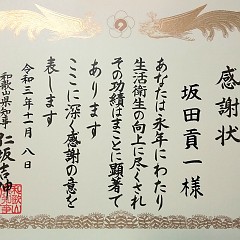 感謝状
坂田貢一様
あなたは永年にわたり
生活衛生の向上に尽くされ
その功績はまことに顕著で
あります
ここに深く感謝の意を
表します
令和三年十一月八日
和歌山県知事 仁坂吉伸